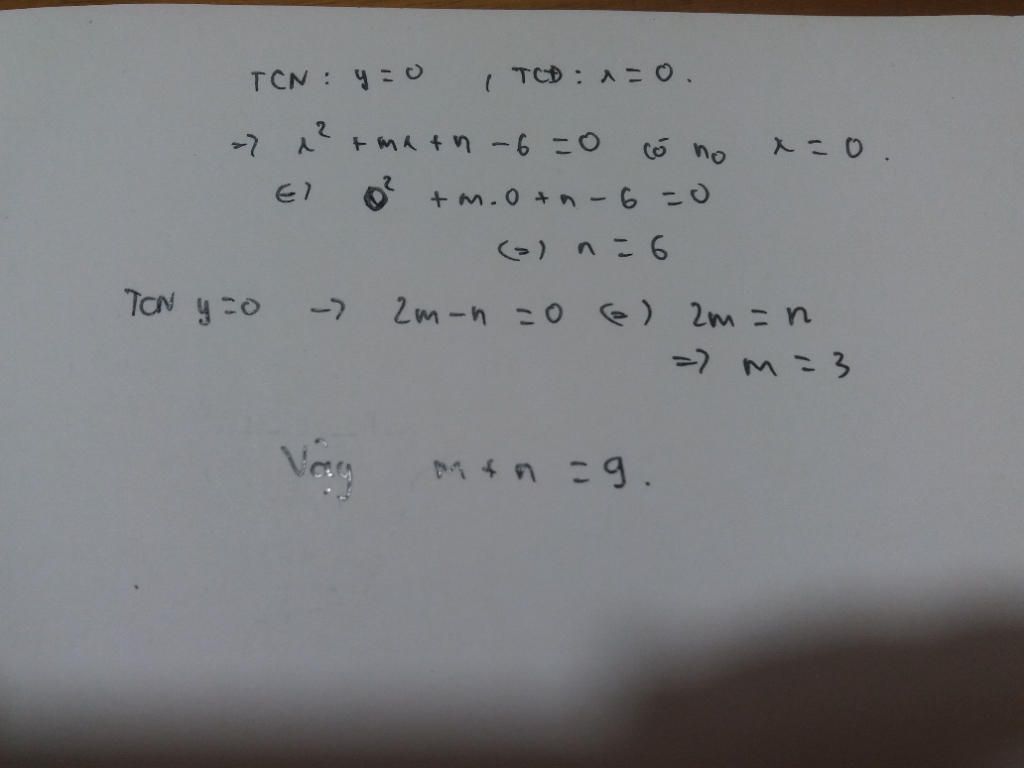 TCN : y = 0 , TCĐ : x = 0 .
→ x² + mx + n - 6 = 0 có no x = 0 .
⇔ 0² + m.0 + n - 6 = 0
⇔ n = 6
TCN y = 0 → 2m - n = 0 ⇔ 2m = n
⇒ m = 3
Vậy m + n = 9 .